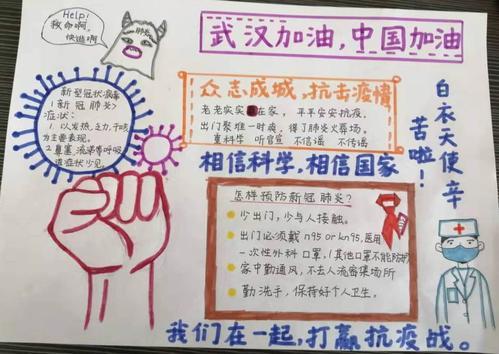 Help!
救命啊,
快逃啊
武汉加油,中国加油
众志成城,抗击疫情
老老实实在家,平平安安抗疫。
出门聚堆一时爽,得了肺炎火葬场。
重科学 听官宣 不信谣 不传谣
新型冠状病毒
<新冠肺炎>
症状:
1.以发热,乏力,干咳
为主要表现。
2.鼻塞,流涕等呼吸
道症状少见。
相信科学,相信国家
白衣天使辛
苦啦!
怎样预防新冠肺炎?
少出门,少与人接触。
出门必须戴n95 or kn95,医用
一次性外科口罩,(其他口罩不能防护)
家中勤通风,不去人流密集场所
勤洗手,保持好个人卫生。
我们在一起,打赢抗疫战。